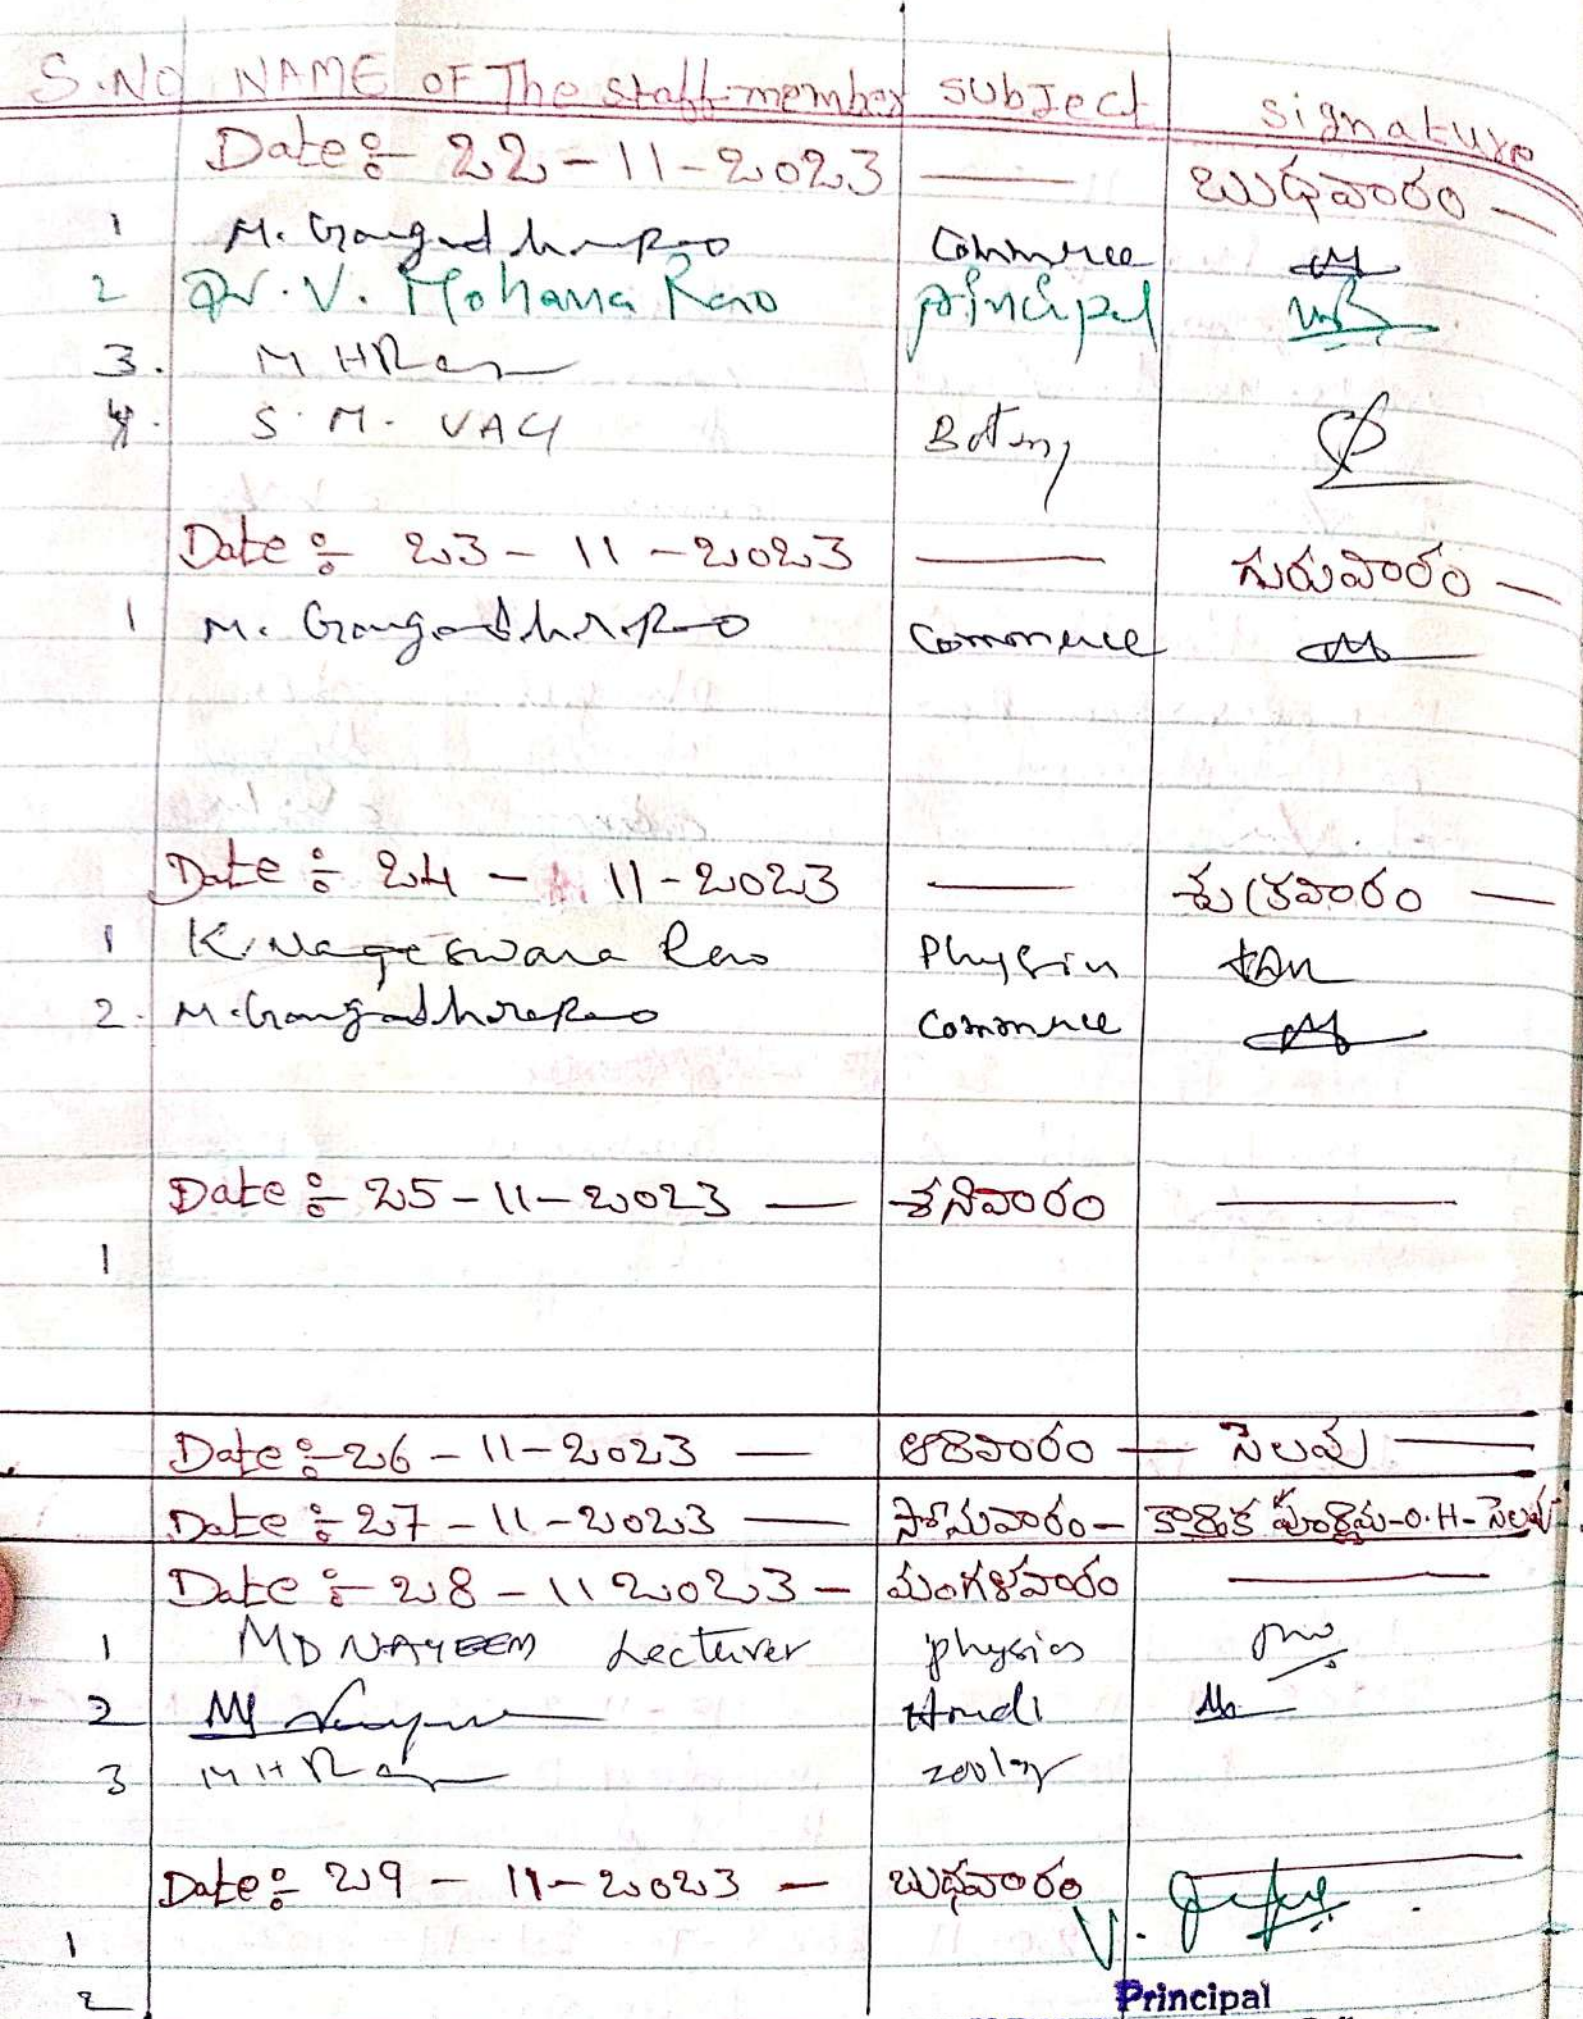 S.NO NAME OF The staff member subject signature
Date :- 22-11-2023 — బుధవారం —
1 M. GangadharaRao Commerce
2 Dr. V. Mohana Rao principal
3. M H Rao
4. S. M. VALI Botany
Date :- 23-11-2023 — గురువారం —
1 M. GangadharaRao Commerce
Date :- 24-11-2023 — శుక్రవారం —
1 K. Nageswara Rao Physics
2. M. GangadharaRao Commerce
Date :- 25-11-2023 — శనివారం —
1
Date :- 26-11-2023 — ఆదివారం — సెలవు —
Date :- 27-11-2023 — సోమవారం - కార్తీక పూర్ణిమ - O.H - సెలవు
Date :- 28-11 2023 - మంగళవారం —
1 MD NAYEEM Lecturer physics
2 Hindi
3 M H Rao zoology
Date :- 29-11-2023 - బుధవారం —
1
2
Principal